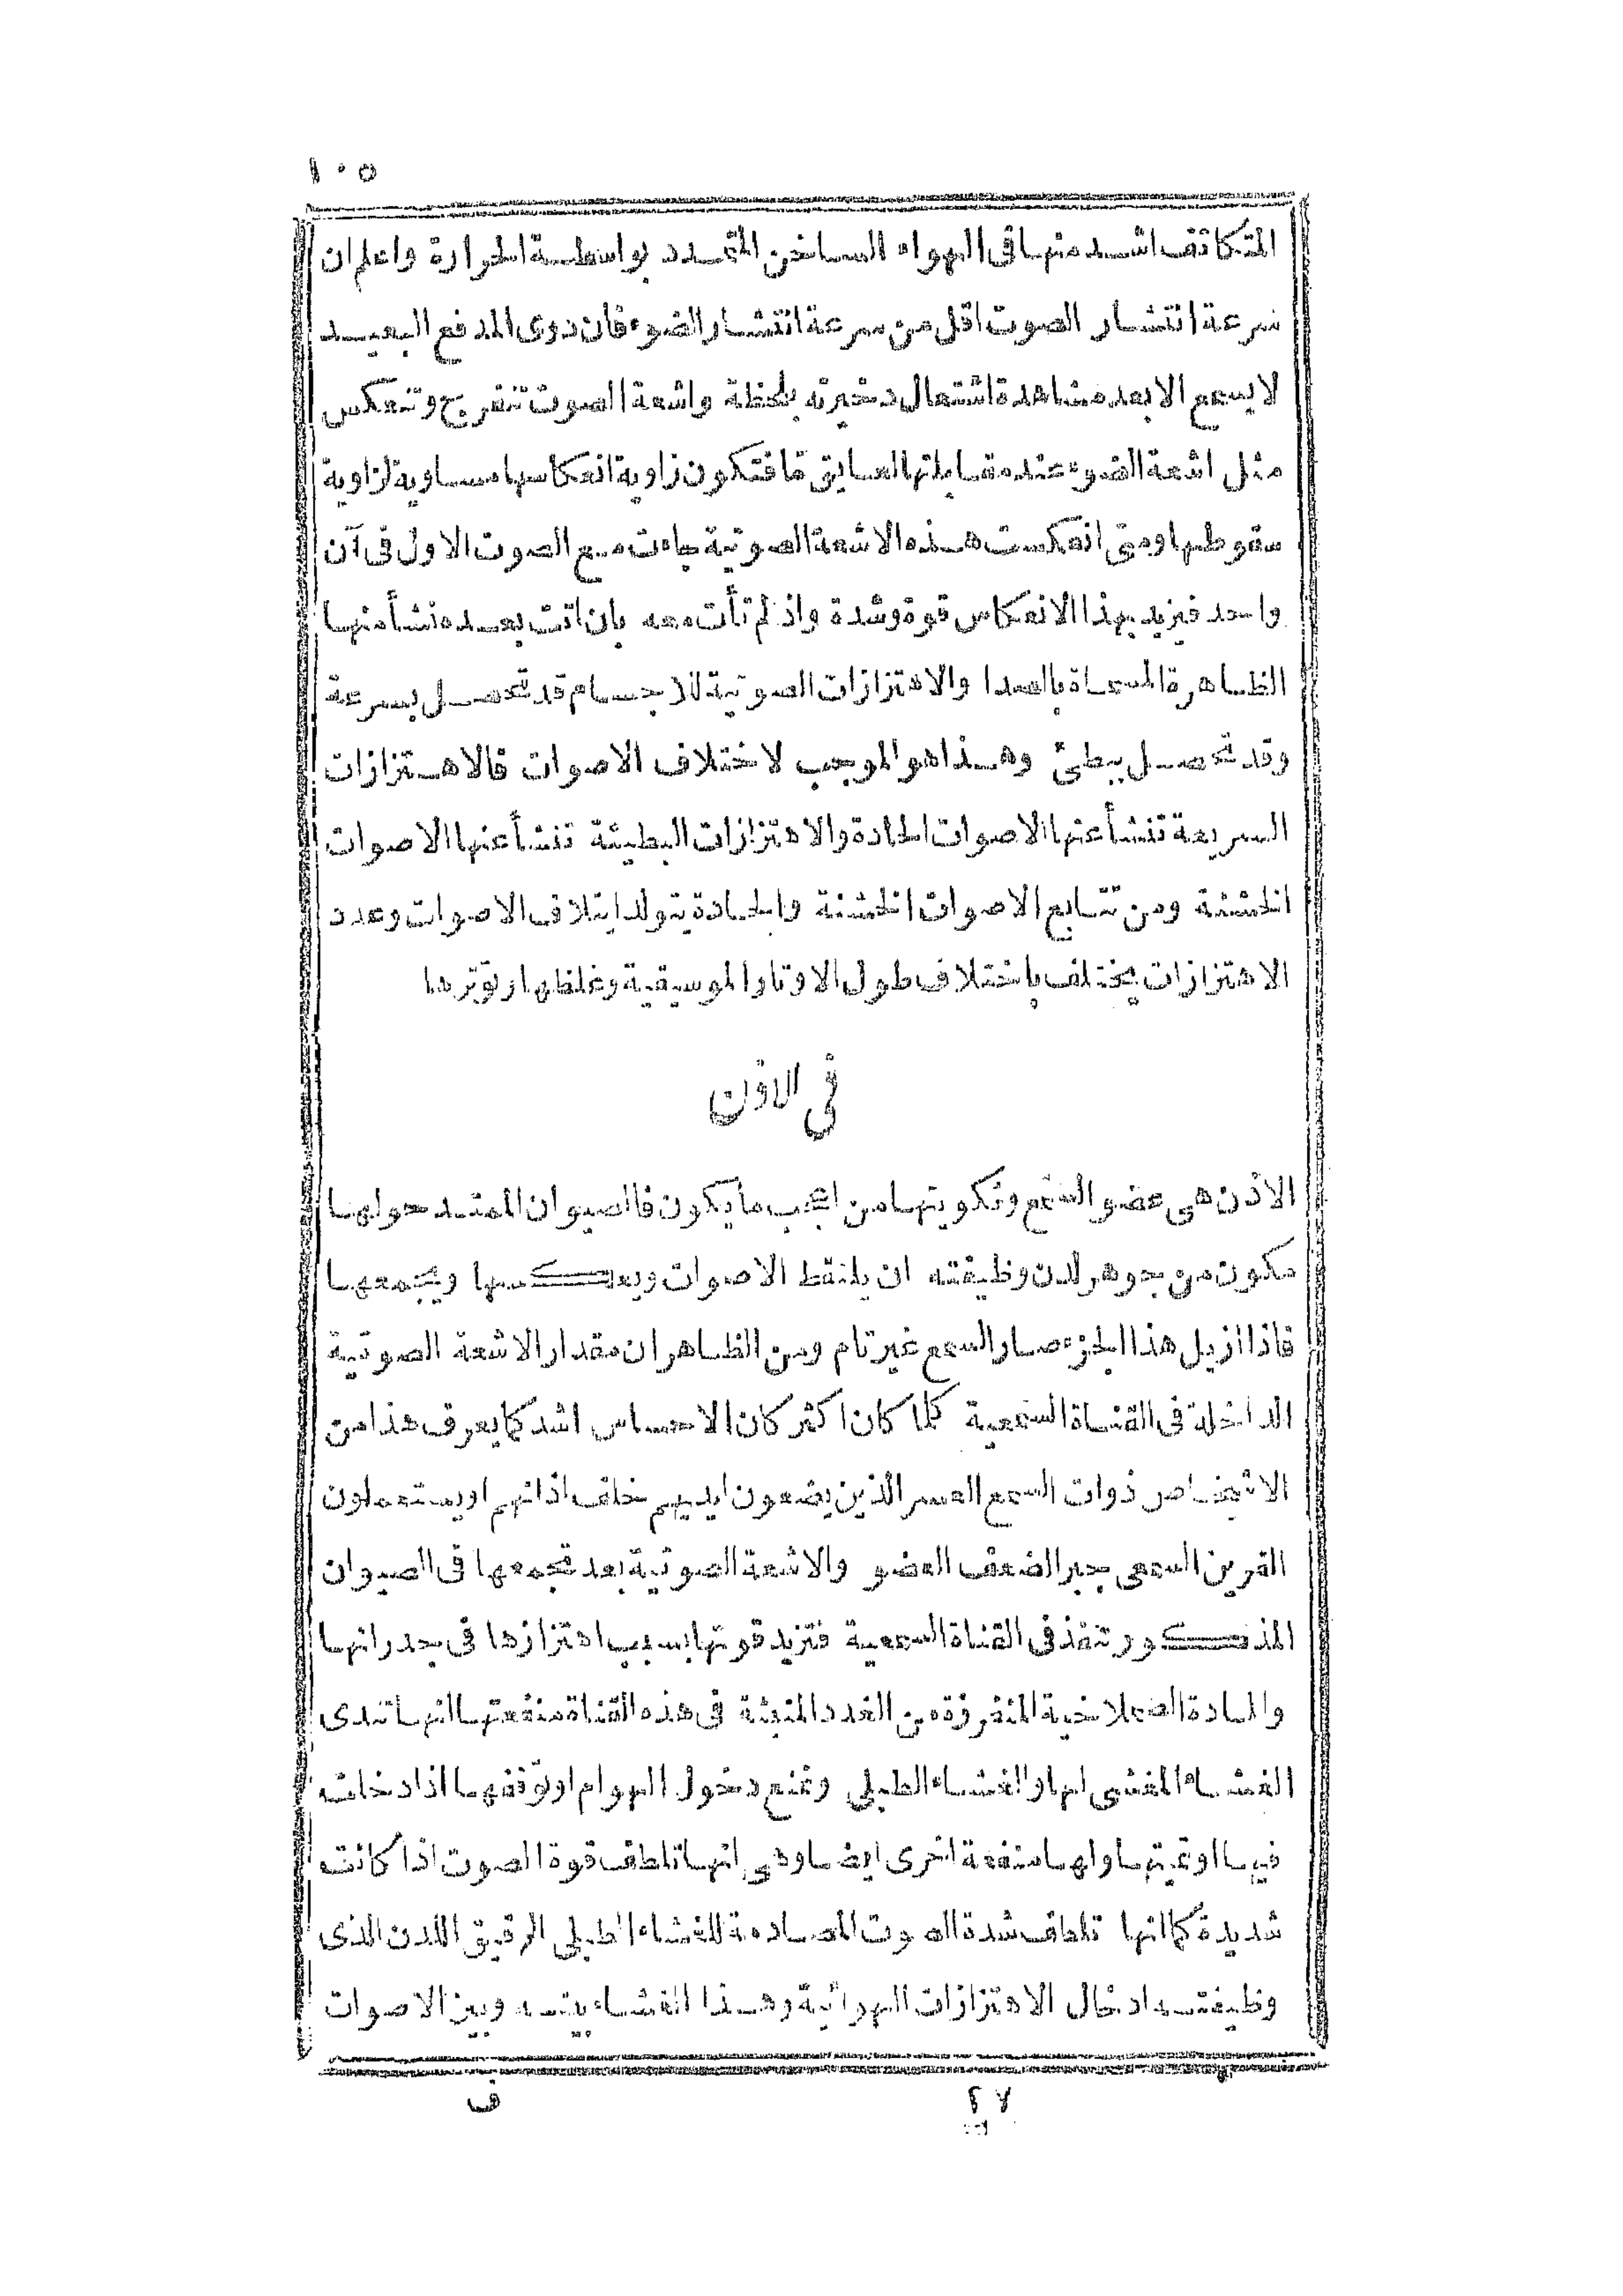 ١٠٥
المتكاثف اشد منها فى الهواء الساخن المتمدد بواسطة الحرارة واعلم ان
سرعة انتشار الصوت اقل من سرعة انتشار الضوء فان دوى المدفع البعيد
لا يسمع الا بعد مشاهدة اشتعال ذخيرته بلحظة واشعة الصوت تنفرج وتنعكس
مثل اشعة الضوء عند مقابلتها لعايق ما فتكون زاوية انعكاسها مساوية لزاوية
سقوطها ومتى انعكست هذه الاشعة الصوتية جاءت مع الصوت الاول فى آن
واحد فيزيد بهذا الانعكاس قوة وشدة واذ لم تأت معه بان اتت بعده نشأ منها
الظاهرة المسماة بالصدا والاهتزازات الصوتية للاجسام قد تحصل بسرعة
وقد تحصل ببطئ وهذا هو الموجب لاختلاف الاصوات فالاهتزازات
السريعة تنشأ عنها الاصوات الحادة والاهتزازات البطيئة تنشأ عنها الاصوات
الخشنة ومن تتابع الاصوات الخشنة والحادة يتولد ايتلاف الاصوات وعدد
الاهتزازات يختلف باختلاف طول الاوتار الموسيقية وغلظها وتوترها
فى الاذن
الاذن هى عضو السمع وتكوينها من اعجب ما يكون فالصيوان الممتد حولها
مكون من جوهر لدن وظيفته ان يلتقط الاصوات ويعكسها ويجمعها
فاذا ازيل هذا الجزء صار السمع غير تام ومن الظاهر ان مقدار الاشعة الصوتية
الداخلة فى القناة السمعية كلما كان اكثر كان الاحساس اشد كما يعرف هذا من
الاشخاص ذوات السمع العسر الذين يضعون ايديهم خلف اذانهم او يستعملون
القرين السمعى جبرا لضعف العضو والاشعة الصوتية بعد تجمعها فى الصيوان
المذكور تنفذ فى القناة السمعية فتزيد قوتها بسبب اهتزازها فى جدرانها
والمادة الصملاخية المنفرزة من الغدد المنبثة فى هذه القناة منفعتها انها تندى
الغشاء المغشى لها والغشاء الطبلى وتمنع دخول الهوام او توقفها اذا دخلت
فيها او تميتها ولها منفعة اخرى ايضا وهى انها تلطف قوة الصوت اذا كانت
شديدة كما انها تلطف شدة الصوت المصادمة للغشاء الطبلى الرقيق اللدن الذى
وظيفته ادخال الاهتزازات الهوائية وهذا الغشاء بينه وبين الاصوات
٢٧ ف